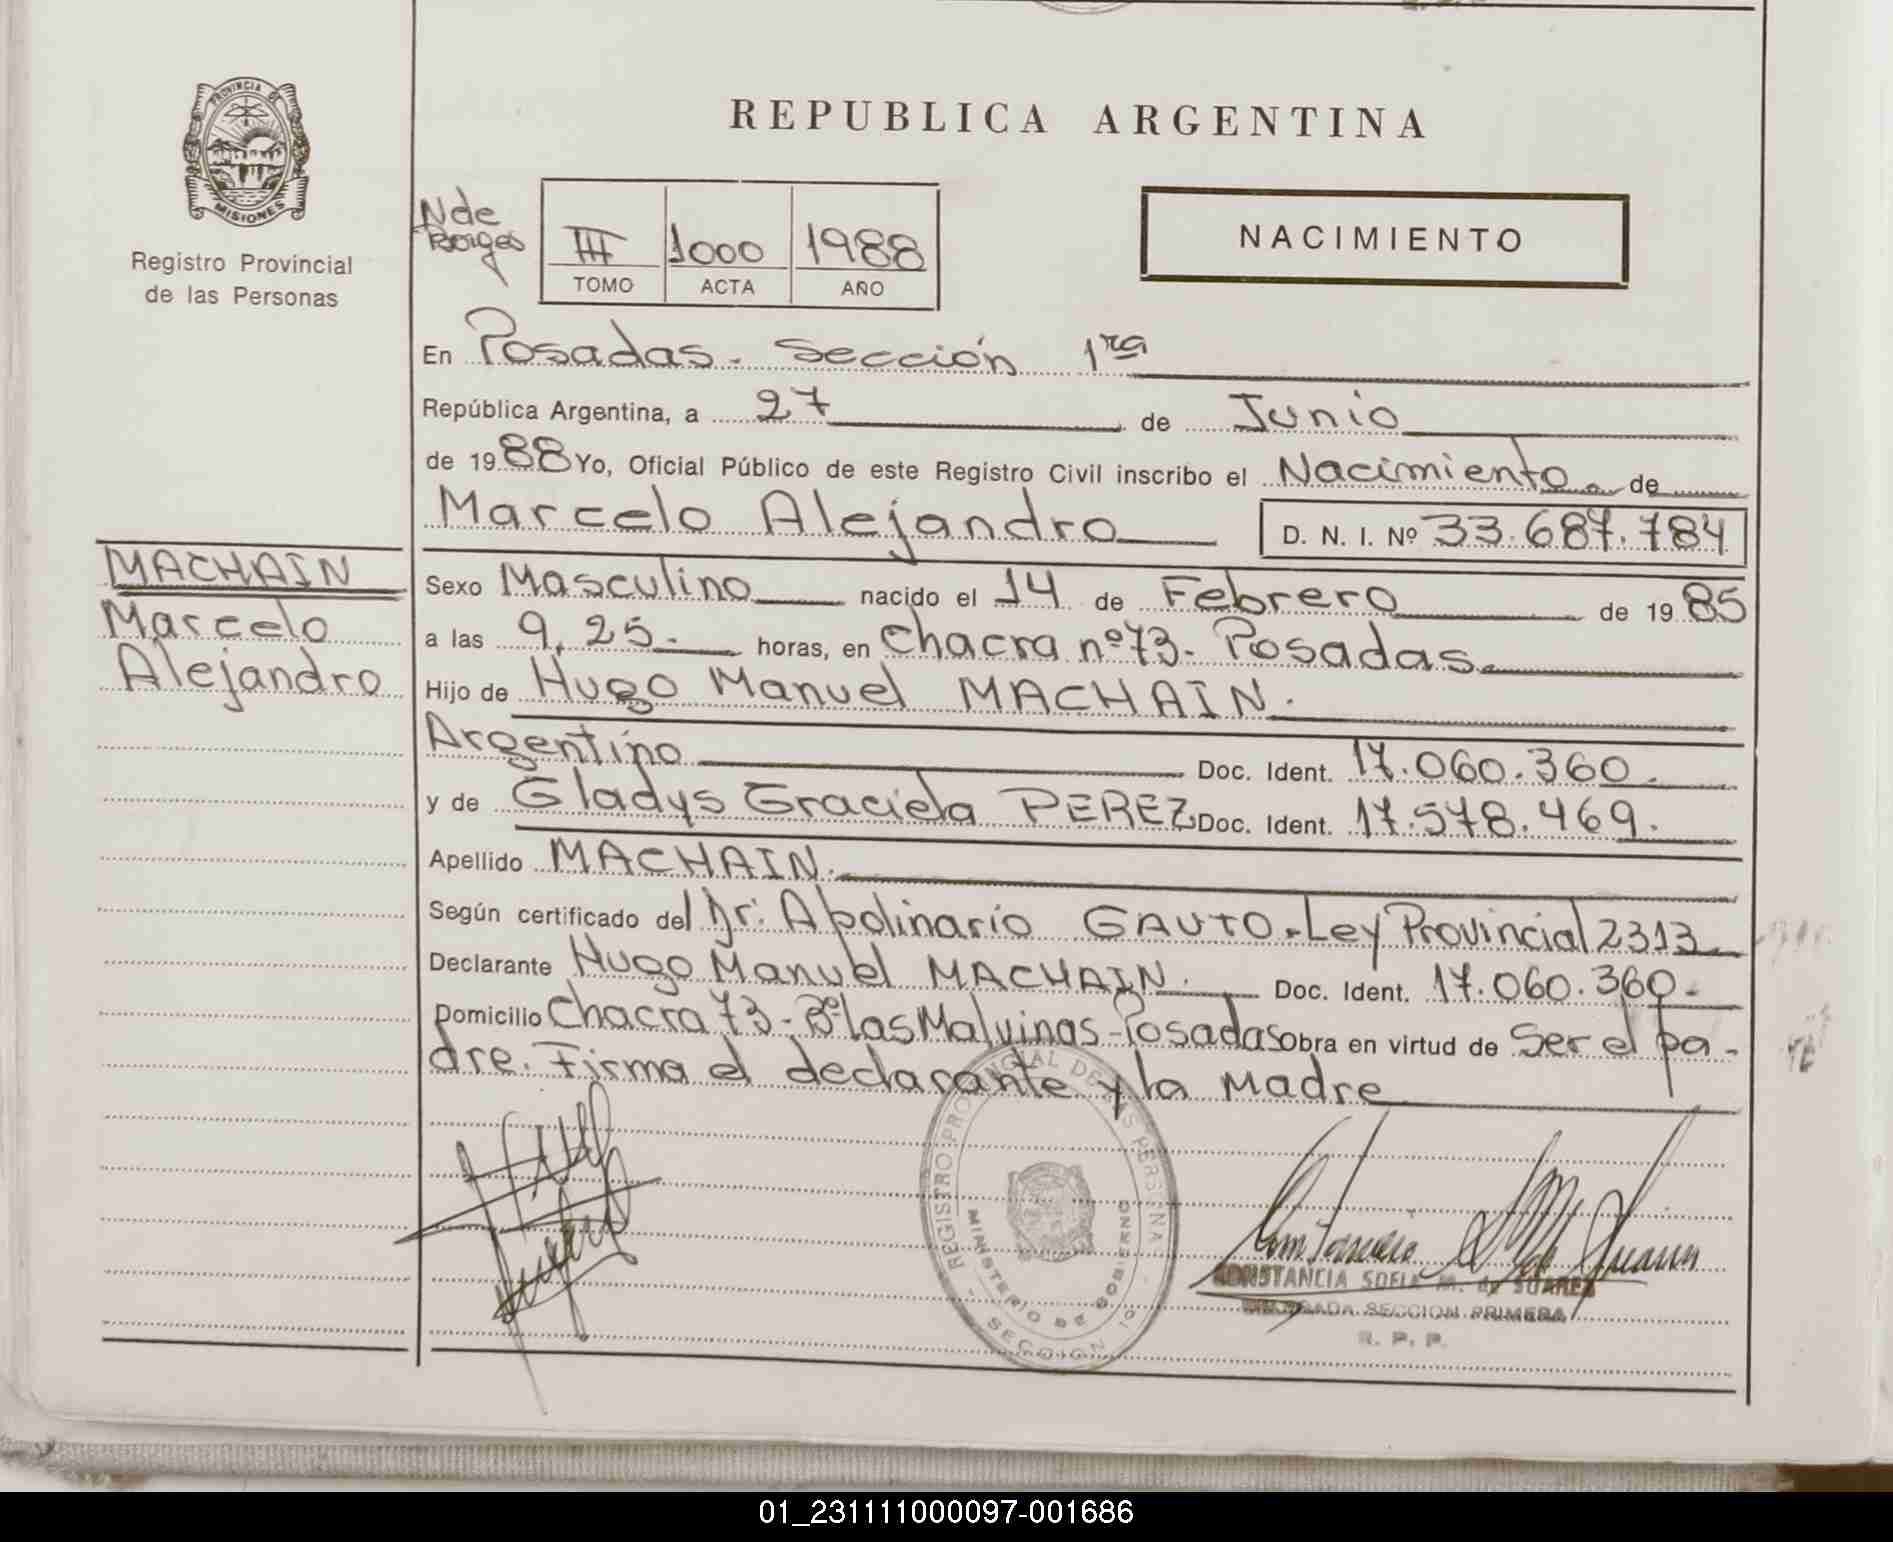 PROVINCIA DE
MISIONES
Registro Provincial
de las Personas
REPUBLICA ARGENTINA
N de
Borges
III 1000 1988
TOMO ACTA AÑO
NACIMIENTO
En Posadas - Sección 1ra
República Argentina, a 27 de Junio
de 1988 Yo, Oficial Público de este Registro Civil inscribo el Nacimiento de
Marcelo Alejandro D. N. I. Nº 33.687.784
MACHAIN
Marcelo
Alejandro
Sexo Masculino nacido el 14 de Febrero de 1985
a las 9,25.- horas, en Chacra nº 73- Posadas.
Hijo de Hugo Manuel MACHAIN.
Argentino Doc. Ident. 17.060.360.
y de Gladys Graciela PEREZ Doc. Ident. 17.578.469.
Apellido MACHAIN.
Según certificado del Dr. Apolinario GAUTO.-Ley Provincial 2313
Declarante Hugo Manuel MACHAIN. Doc. Ident. 17.060.360-
Domicilio Chacra 73-Bº Las Malvinas-Posadas Obra en virtud de Ser el pa-
dre. Firma el declarante y la Madre
REGISTRO PROVINCIAL DE LAS PERSONAS
MINISTERIO DE GOBIERNO
SECCION 1º
CONSTANCIA SOFIA M. de SUAREZ
SECCION PRIMERA
R. P. P.
01_231111000097-001686